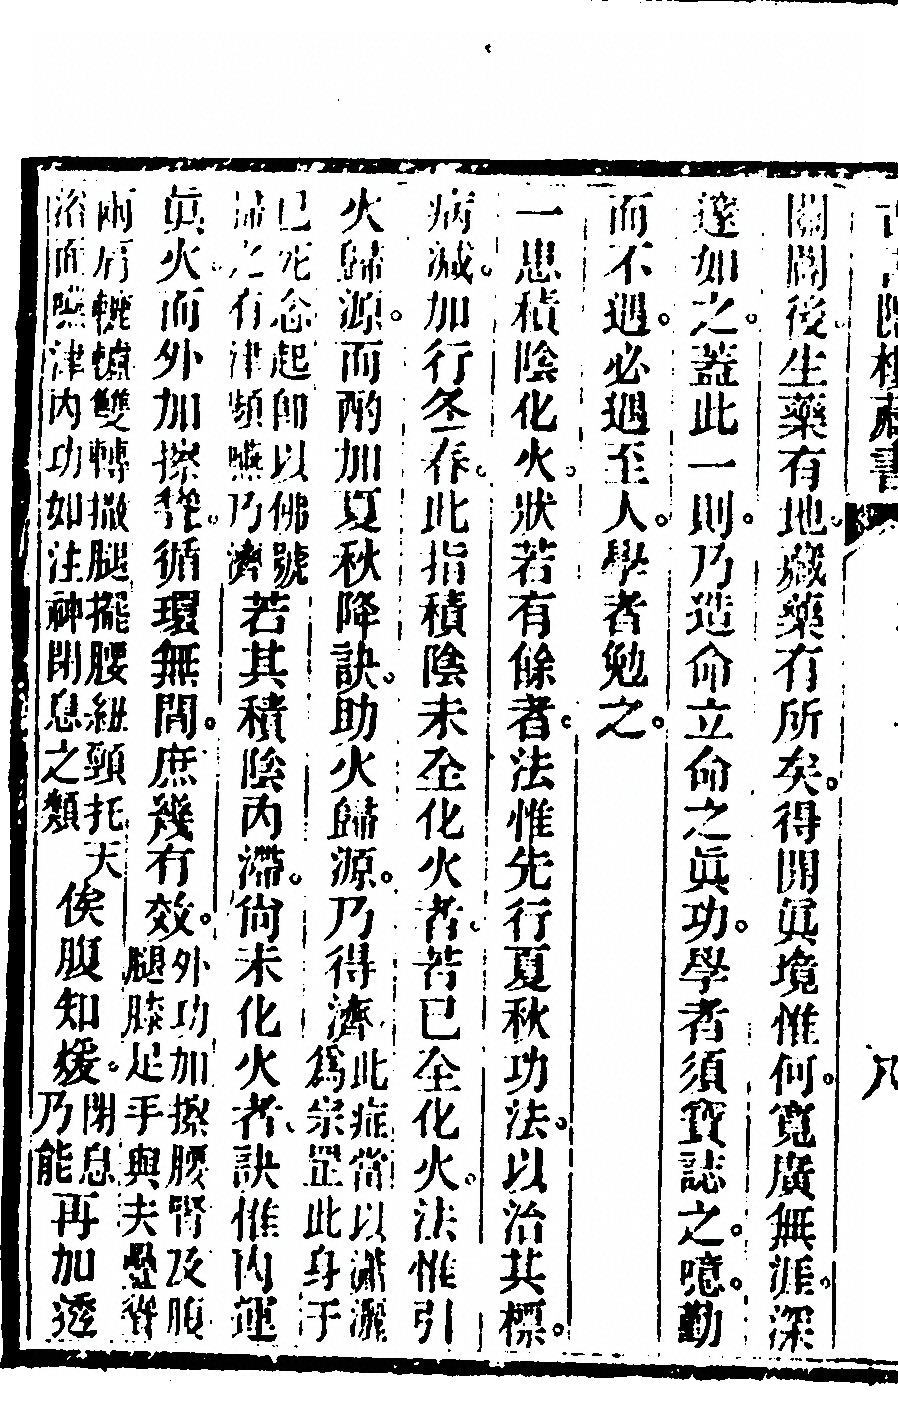 古書隱樓藏書 八
關闢後。生藥有地。藏藥有所矣。得開眞境惟何。寬廣無涯。深
邃如之。蓋此一則。乃造命立命之眞功。學者須寶誌之。噫。勤
而不遇。必遇至人。學者勉之。
一患積陰化火。狀若有餘者。法惟先行夏秋功法。以治其標。
病減。加行冬春。此指積陰未全化火者。若已全化火。法惟引
火歸源。而酌加夏秋降訣。助火歸源。乃得濟。此症當以瀟灑爲宗罡此身于
已死念起卽以佛號掃之有津頻嚥乃濟若其積陰內滯。尙未化火者。訣惟內運
眞火。而外加擦。循環無間。庶幾有效。外功加擦腰腎及腹腿膝足手與夫疊脊
兩肩轆轤雙轉撒腿擺腰紐頸托天浴面嚥津內功如注神閉息之類俟腹知煖。閉息乃能再加透